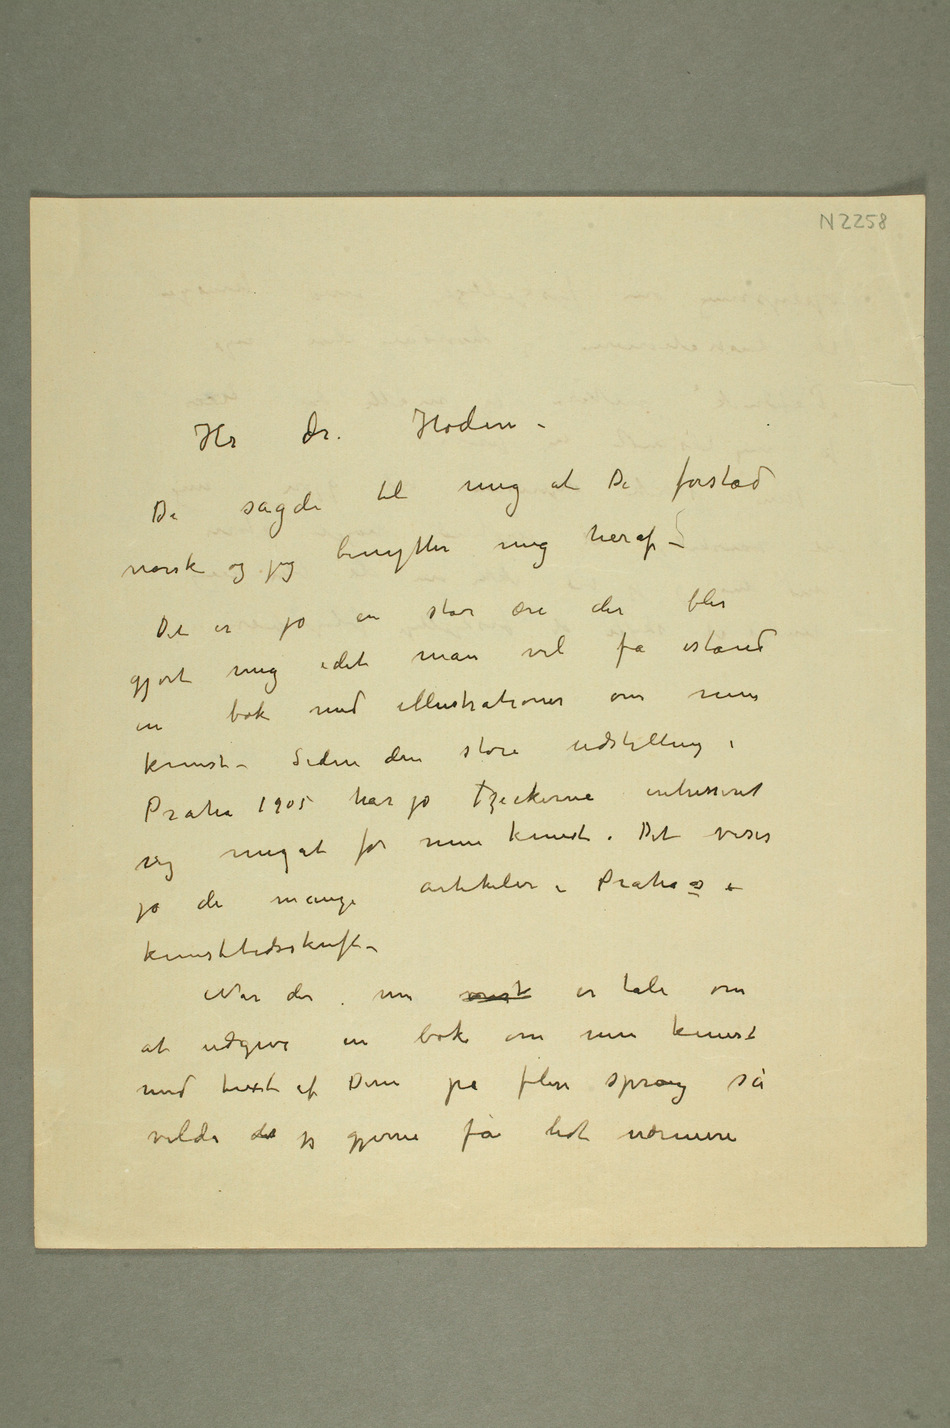 N 2258
Hr dr. Hodin –
De sagde til mig at De forstod
norsk og jeg benytter mig heraf –
Det er jo en stor ære der blir
gjort mig idet man vil få istand
en bok med illustrationer om min
kunst – Siden den store udstilling i
Praha 1905 har jo Tzeckerne interesseret
sig meget for min kunst. Det viser
jo de mange artikeler i Praha s
kunsttidsskrift –
Når der nu er tale om
at udgive en bok om min kunst
med text af Dem på flere sprog så
vilde jeg gjerne få lidt nærmere